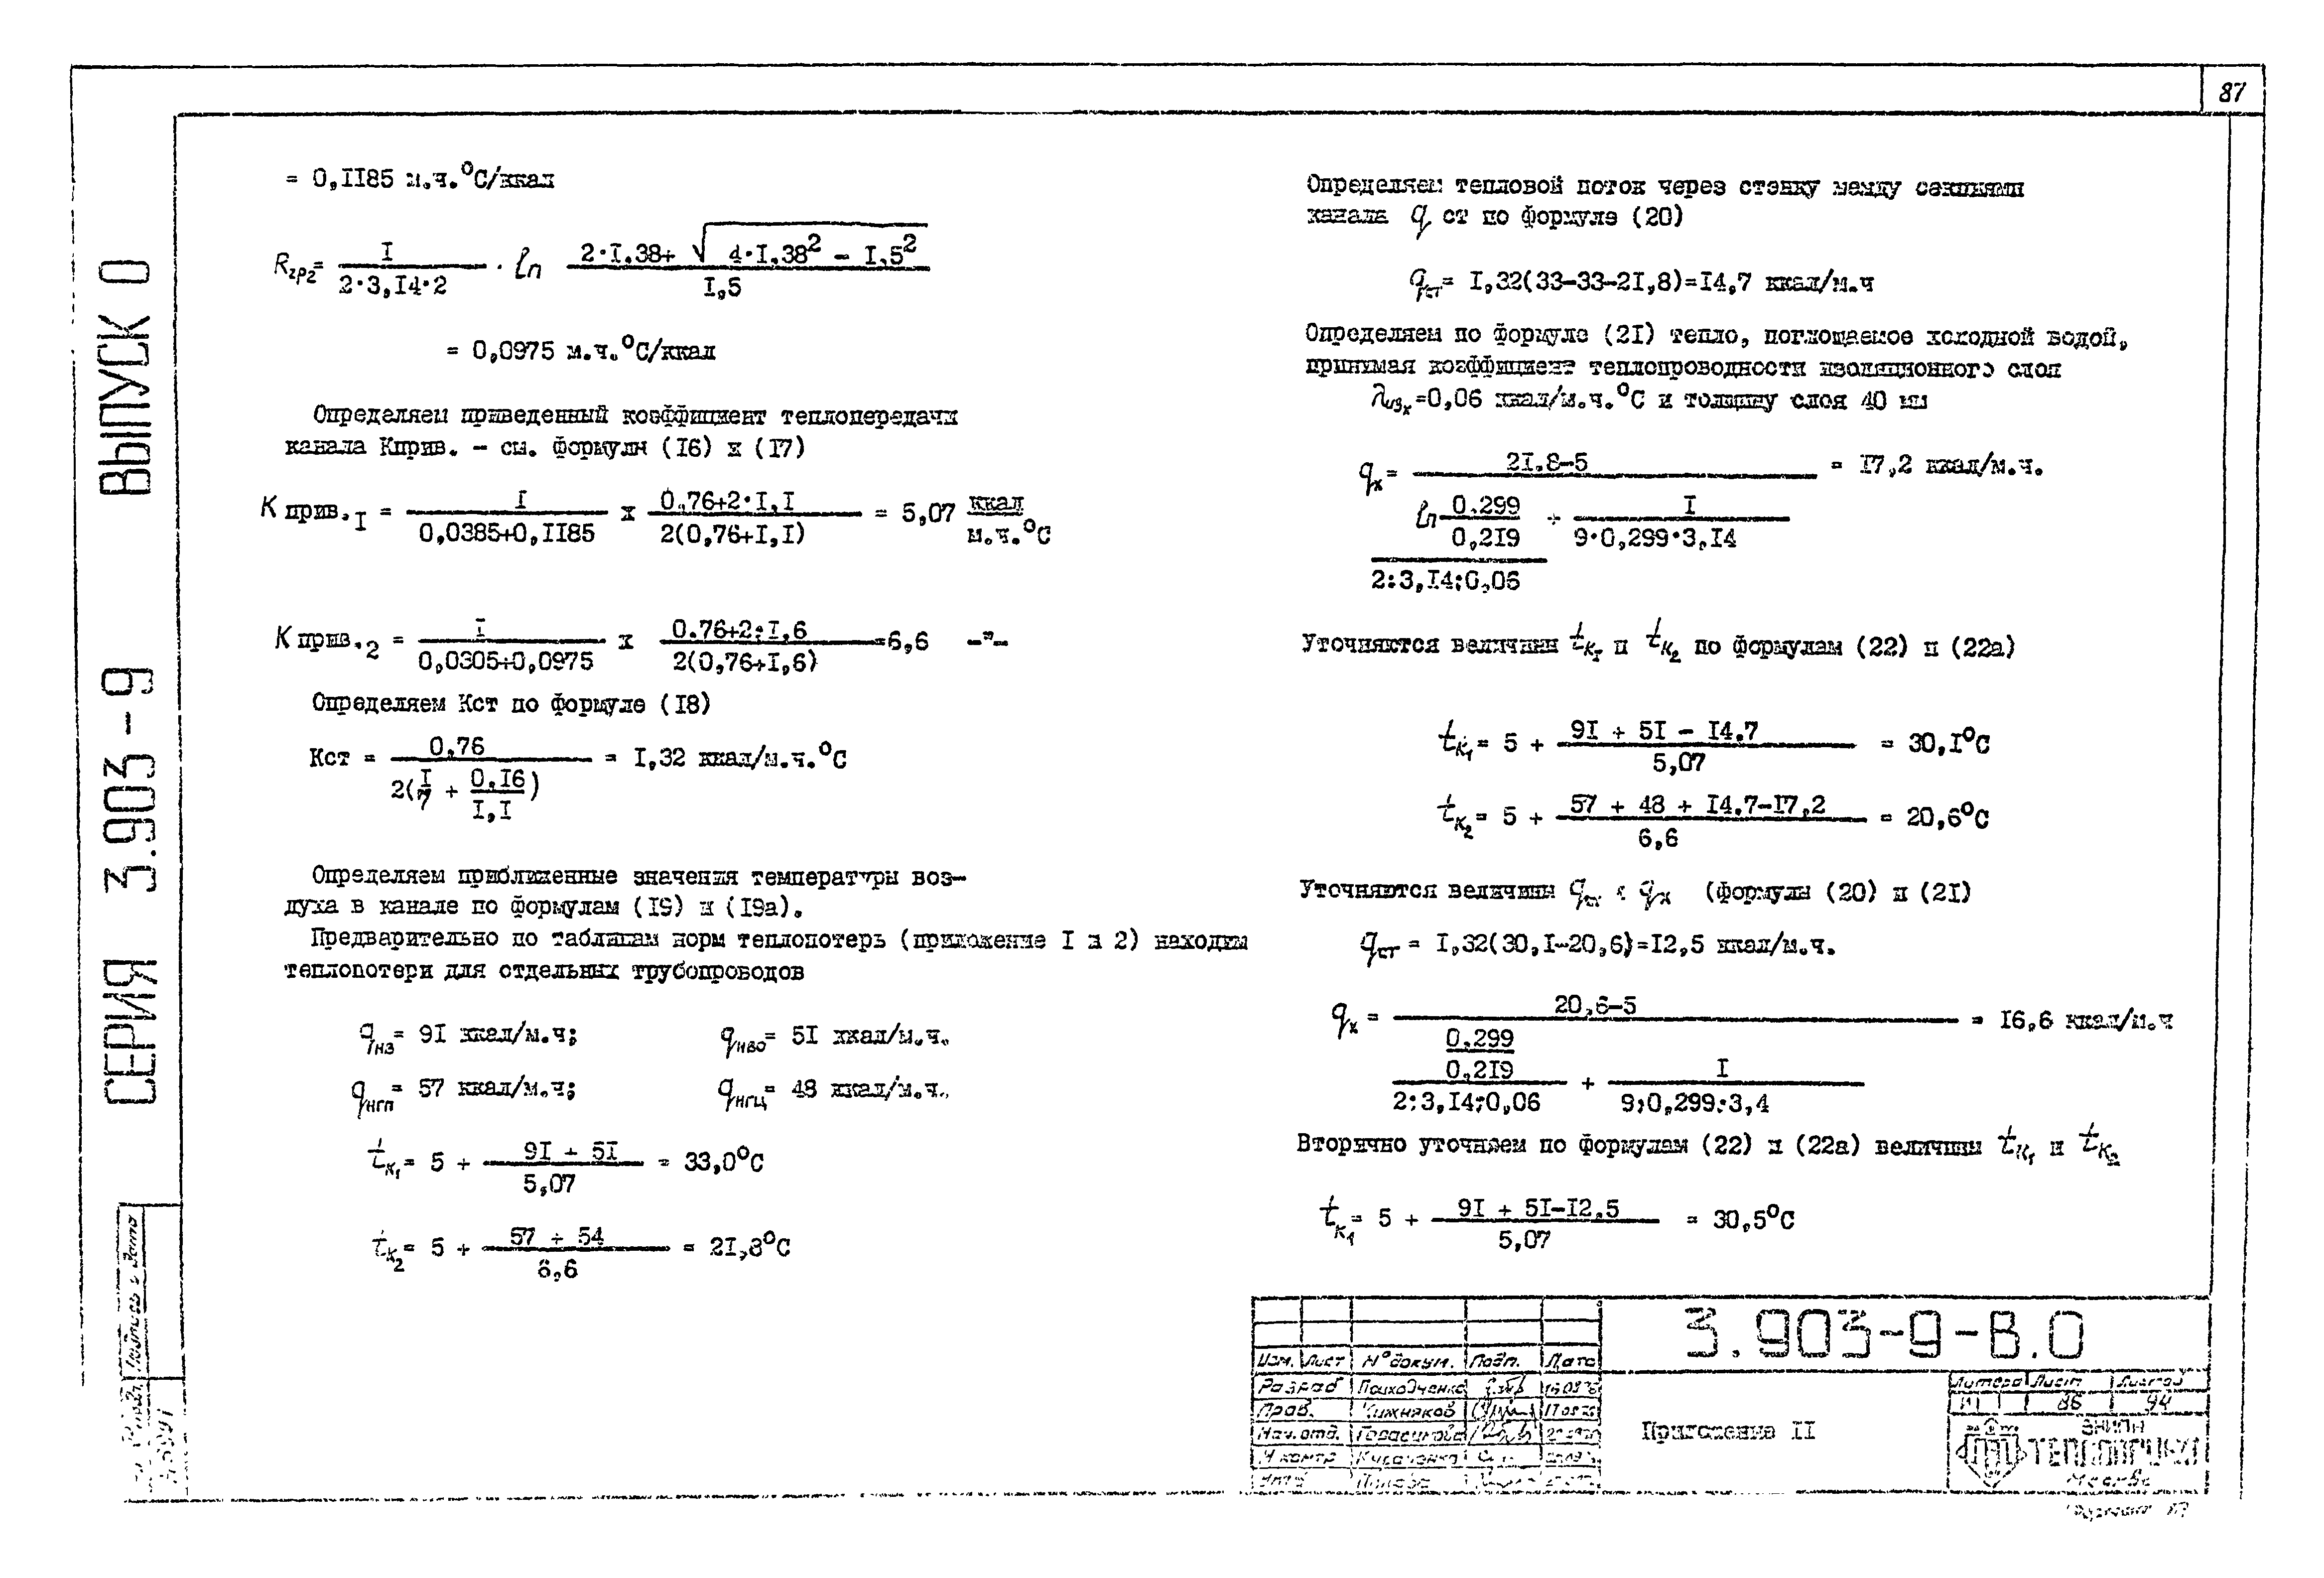 87
ВЫПУСК 0
СЕРИЯ 3.903-9
= 0,1185 м.ч.°С/ккал
Rгр2= 1 / 2·3,14·2 · ln 2·1,38+ √ 4·1,38² - 1,5² / 1,5
= 0,0975 м.ч.°С/ккал
Определяем приведенный коэффициент теплопередачи
канала Кприв. - см. формулы (16) и (17)
К прив.1 = 1 / 0,0385+0,1185 х 0,76+2·1,1 / 2(0,76+1,1) = 5,07 ккал / м.ч.°С
К прив.2 = 1 / 0,0305+0,0975 х 0.76+2·1,6 / 2(0,76+1,6) =6,6 -"-
Определяем Кст по формуле (18)
Кст = 0,76 / 2(1/7 + 0,16/1,1) = 1,32 ккал/м.ч.°С
Определяем приближенные значения температуры воз-
духа в канале по формулам (19) и (19а).
Предварительно по таблицам норм теплопотерь (приложение 1 и 2) находим
теплопотери для отдельных трубопроводов
qнз= 91 ккал/м.ч; qнво= 51 ккал/м.ч.
qнгп= 57 ккал/м.ч; qнгц= 48 ккал/м.ч.
tк1= 5 + 91 + 51 / 5,07 = 33,0°С
tк2= 5 + 57 + 54 / 6,6 = 21,8°С
Определяем тепловой поток через стенку между секциями
канала q ст по формуле (20)
qст= 1,32(33-33-21,8)=14,7 ккал/м.ч
Определяем по формуле (21) тепло, поглощаемое холодной водой,
принимая коэффициент теплопроводности изоляционного слоя
λизх=0,06 ккал/м.ч.°С и толщину слоя 40 мм
qх= 21.8-5 / ln 0.299 / 0,219 / 2·3,14·0,06 + 1 / 9·0,299·3,14 = 17,2 ккал/м.ч.
Уточняются величины tк1 и tк2 по формулам (22) и (22а)
tк1= 5 + 91 + 51 - 14.7 / 5,07 = 30,1°С
tк2= 5 + 57 + 48 + 14,7-17,2 / 6,6 = 20,6°С
Уточняются величины qст и qх (формулы (20) и (21)
qст = 1,32(30,1-20,6)=12,5 ккал/м.ч.
qх = 20,6-5 / 0.299 / 0,219 / 2·3,14·0,06 + 1 / 9·0,299·3,4 = 16,6 ккал/м.ч
Вторично уточняем по формулам (22) и (22а) величины tк1 и tк2
tк1= 5 + 91 + 51-12,5 / 5,07 = 30,5°С
3.903-9-В.0
Изм. Лист N° докум. Подп. Дата
Разраб Приходченко
Пров. Чижняков
Нач.отд.
Н контр
Приложение 11
Литера Лист Листов
И 86 94
ВНИПИ
ТЕПЛОПРОЕКТ
Москва
Подпись и дата
Формат